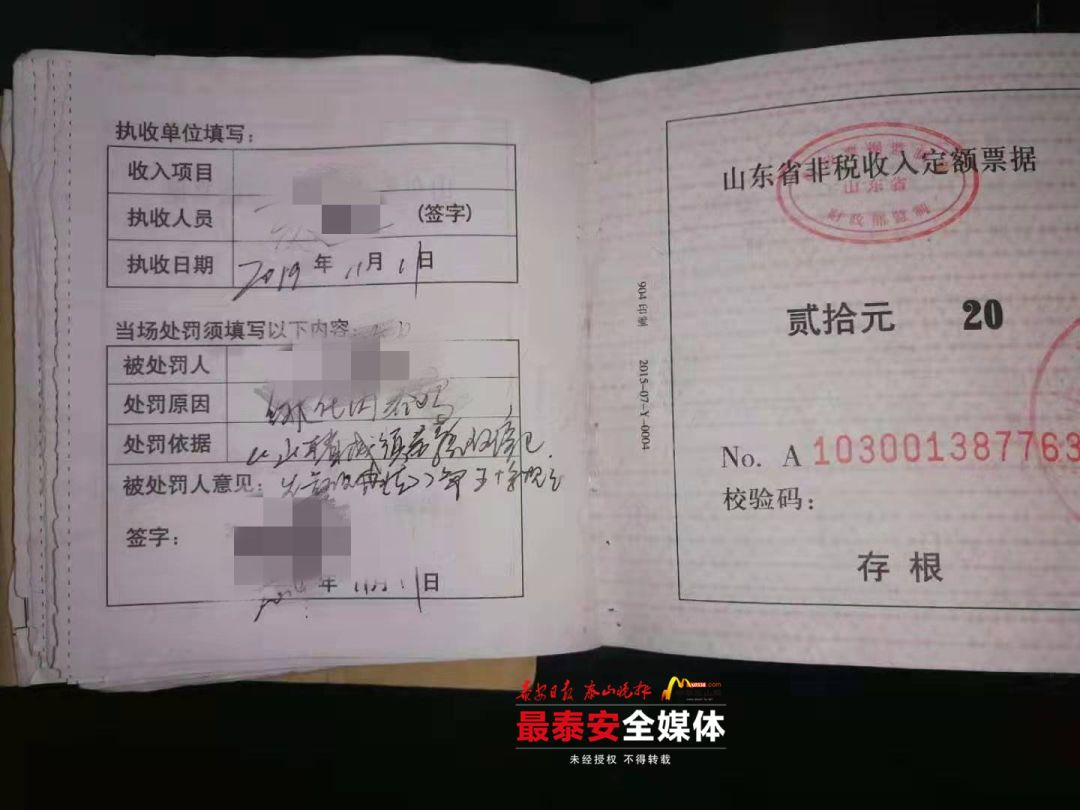 执收单位填写:
收入项目
执收人员 (签字)
执收日期 2019年 11月 11日
当场处罚须填写以下内容
被处罚人
处罚原因
处罚依据 《山东省城镇容貌和
被处罚人意见:
签字:
年 11月 11日
904 印制 2015-07-Y-0004
山东省非税收入定额票据
山东省
财政部监制
贰拾元 20
No. A 103001387763
校验码:
存根
泰安日报 泰山晚报
最泰安全媒体
未经授权 不得转载